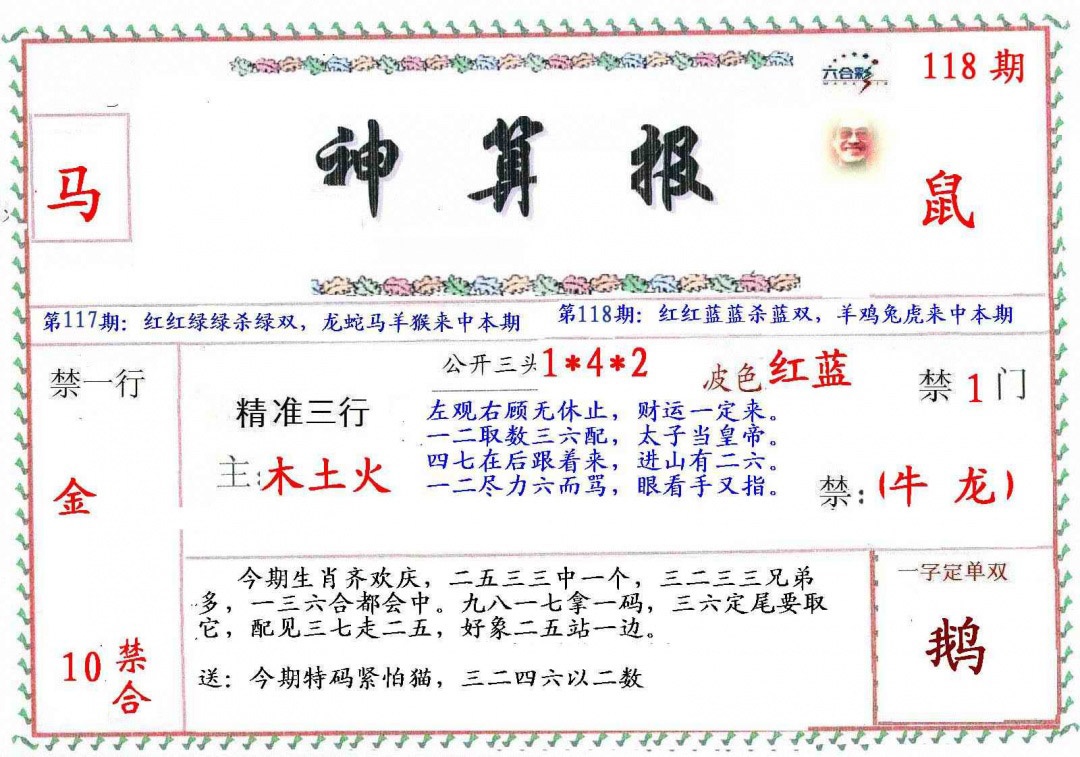 六合彩
118 期
神算报
马
鼠
第117期：红红绿绿杀绿双，龙蛇马羊猴来中本期
第118期：红红蓝蓝杀蓝双，羊鸡兔虎来中本期
禁一行
金
10 禁合
精准三行
主:木土火
公开三头1*4*2
波色 红蓝
左观右顾无休止，财运一定来。
一二取数三六配，太子当皇帝。
四七在后跟着来，进山有二六。
一二尽力六而骂，眼看手又指。
禁 1 门
禁:(牛 龙)
今期生肖齐欢庆，二五三三中一个，三二三三兄弟
多，一三六合都会中。九八一七拿一码，三六定尾要取
它，配见三七走二五，好象二五站一边。
送：今期特码紧怕猫，三二四六以二数
一字定单双
鹅